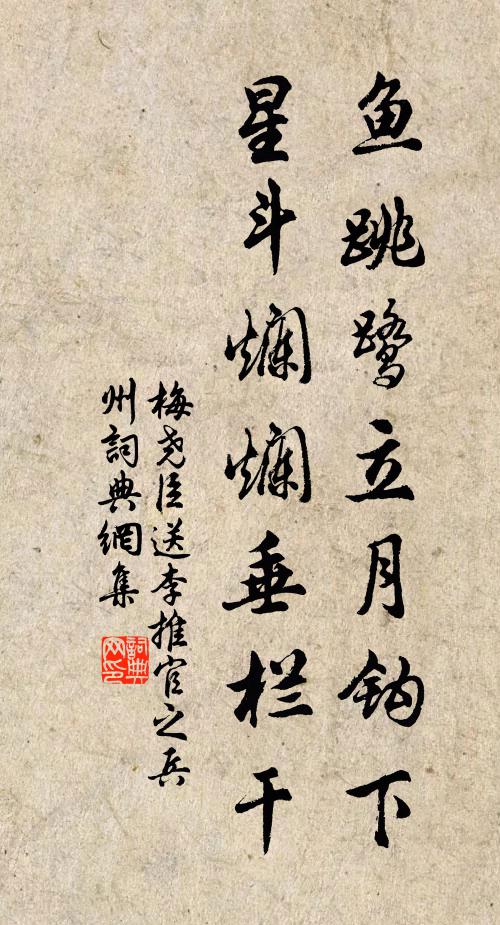 鱼跳鹭立月钩下
星斗爛爛垂栏干
梅尧臣送李推官之兵
州詞典網集
詞典網印